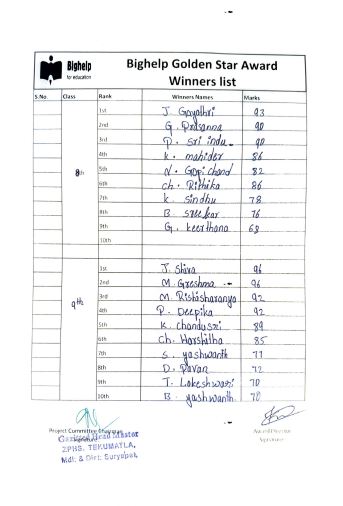 Bighelp
for education
Bighelp Golden Star Award
Winners list
S.No. Class Rank Winners Names Marks
1st J. Gayathri 93
2nd G. Prasanna 90
3rd P. Sri indu 90
4th K. mahider 86
8th 5th N. Gopi chand 82
6th Ch. Rithika 86
7th K. Sindhu 78
8th B. sreekar 76
9th G. keerthana 68
10th
1st J. Shiva 96
2nd M. Greshma 96
3rd M. Rishisharanya 92
9th 4th P. Deepika 92
5th K. chandusri 89
6th Ch. Harshitha 85
7th S. yashwanth 77
8th D. Pavan 72
9th T. Lokeshwari 70
10th B. yashwanth 70
Project Committee Chairman
Signature
Gazitted Head Master
ZPHS, TEKUMATLA,
Mdl: & Dist: Suryapet,
Award Director
Signature